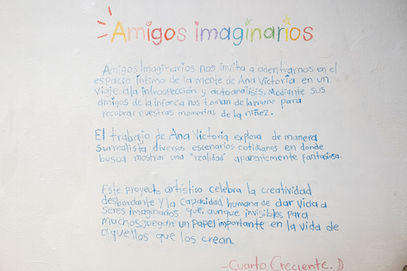 Amigos imaginarios
Amigos Imaginarios nos invita a adentrarnos en el
espacio íntimo de la mente de Ana Victoria en un
viaje a la introspección y autoanálisis. Mediante sus
amigos de la infancia nos toman de la mano para
recobrar nuestras memorias de la niñez.
El trabajo de Ana Victoria explora de manera
surrealista diversos escenarios cotidianos en donde
busca mostrar una "realidad" aparentemente fantasiosa.
Este proyecto artístico celebra la creatividad
desbordante y la capacidad humana de dar vida a
seres imaginarios que, aunque invisibles para
muchos, juegan un papel importante en la vida de
aquellos que los crean.
-Cuarto Creciente.